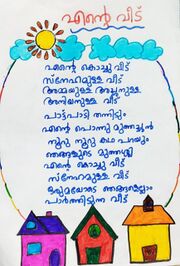 എന്റെ വീട്
എന്റെ കൊച്ചു വീട്
സ്നേഹമുള്ള വീട്
അമ്മയുള്ള അച്ഛനുള്ള
അനിയനുള്ള വീട്
പാട്ടുപാട്ടി തന്നിടും
എന്റെ പൊന്നു മുത്തച്ഛൻ
നൂറു നൂറു കഥ പറയും
ഞങ്ങളുടെ മുത്തശ്ശി
എന്റെ കൊച്ചു വീട്
സ്നേഹമുള്ള വീട്
ഒരുമയോടെ ഞങ്ങളെല്ലാം
പാർത്തിടുന്ന വീട്